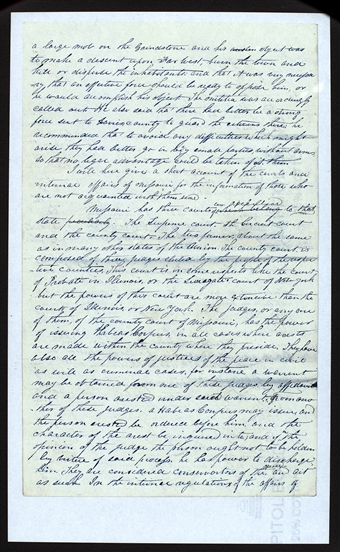 a large mob on the Grindstone and his object was
to make a descent upon Far West, burn the town and
kill or disperse the inhabitants and that it was very necessa
ry that an effective force should be ready to oppose him, or
he would accomplish his object. The militia was accordingly
called out. He also said that there had better be a strong
force sent to Daviess county to guard the citizens there, he
recommended that to avoid any difficulties which might
arise they had better go in very small parties without arms
so that no legal advantage could be taken of them
I will here give a short account of the courts and
internal affairs of Missouri for the information of those who
are not acquainted with the same
Missouri has three courts of law peculiar to that
state The supreme court, the circuit court
and the county court. The two former, about the same
as in many other states of the Union. The county court is
composed of three judges elected by the people of the respec
tive counties This court is in some respects like the court
of Probate in Illinois, or the Surrogate court of New york
but the powers of this court are more extensive than the
county of Illinois or New York. The judges, or any one
of them, of the county court of Missouri, has the power
of issuing Habeas Corpus in all cases where arrests
are made within the county where they preside. They have
also all the powers of justices of the peace in civil
as well as criminal cases, for instance a warrant
may be obtained from one of these judges by affidavit
and a person arrested under warrant, from ano
ther of these judges, a Habeas Corpus may issue, and
the person arrested be ordered before him and the
character of the arrest be inquired into, and if the
opinion of the judge the person ought not to be holden
by virtue of said process he has power to discharge
him. They are considered conservators of the peace and act
as such. In the internal regulations of the affairs of